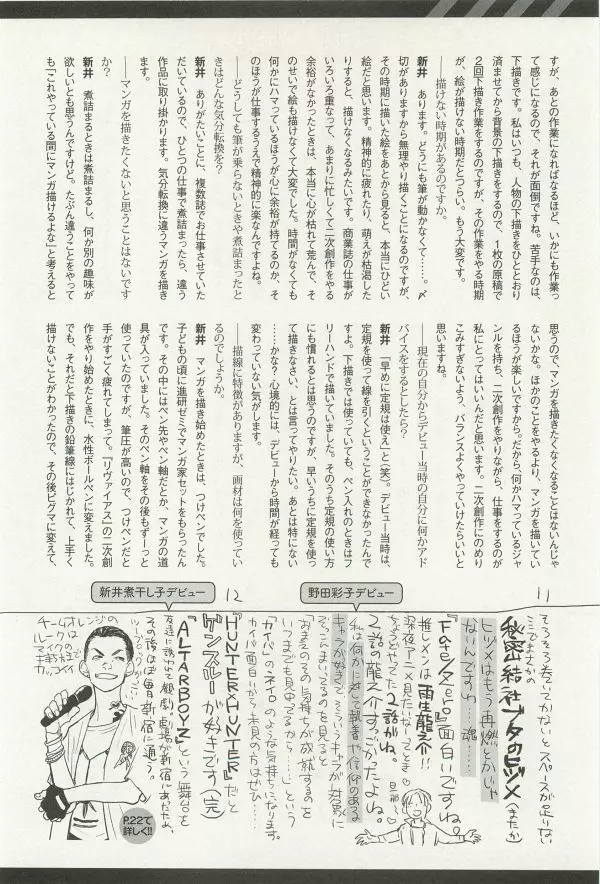 すが、あとの作業になればなるほど、いかにも作業っ
て感じになるので、それが面倒ですね。苦手なのは、
下描きです。私はいつも、人物の下描きをひととおり
済ませてから背景の下描きをするので、1枚の原稿で
2回下描き作業をするのですが、その作業をやる時期
が、絵が描けない時期だとつらい。もう大変です。
――描けない時期があるのですか。
新井 あります。どうにも筆が動かなくて……。〆
切がありますから無理やり描くことになるのですが、
その時期に描いた絵をあとから見ると、本当にひどい
絵だと思います。精神的に疲れたり、萌えが枯渇した
りすると、描けなくなるみたいです。商業誌の仕事が
いろいろ重なって、あまりに忙しくて二次創作をやる
余裕がなかったときは、本当に心が枯れて荒んで、そ
のせいで絵も描けなくて大変でした。時間がなくても
何かにハマっているほうが心に余裕が持てるのか、そ
のほうが仕事するうえで精神的に楽なんですよね。
――どうしても筆が乗らないときや煮詰まったと
きはどんな気分転換を?
新井 ありがたいことに、複数誌でお仕事させていた
だいているので、ひとつの仕事で煮詰まったら、違う
作品に取り掛かります。気分転換に違うマンガを描き
ます。
――マンガを描きたくないと思うことはないです
か?
新井 煮詰まるときは煮詰まるし、何か別の趣味が
欲しいとも思うんですけど。たぶん違うことをやって
も「これやっている間にマンガ描けるよな」と考えると
思うので、マンガを描きたくなくなることはないんじゃ
ないかな。ほかのことをやるより、マンガを描いてい
るほうが楽しいですから。だから、何かハマっているジャ
ンルを持ち、二次創作をやりながら、仕事をするのが
私にとってはいいんだと思います。二次創作にのめり
こみすぎないよう、バランスよくやっていけたらいいと
思いますね。
――現在の自分からデビュー当時の自分に何かアド
バイスをするとしたら?
新井 「早めに定規は使え」と(笑)。デビュー当時は、
定規を使って線を引くということができなかったんで
すよ。下描きでは使っていても、ペン入れのときはフ
リーハンドで描いていました。そのうち定規の使い方
にも慣れるとは思うのですが、早いうちに定規を使っ
て描きなさい、とは言ってやりたい。あとは特にない
……かな?心境的には、デビューから時間が経っても
変わっていない気がします。
――描線に特徴がありますが、画材は何を使ってい
るのでしょうか。
新井 マンガを描き始めたときは、つけペンでした。
子どもの頃に進研ゼミでマンガ家セットをもらったん
です。その中にはペン先やペン軸だとか、マンガの道
具が入っていました。そのペン軸をその後もずーっと
使っていたのですが、筆圧が高いので、つけペンだと
手がすごく疲れてしまって。『リヴァイアス』の二次創
作をやり始めたときに、水性ボールペンに変えました。
でも、それだと下描きの鉛筆線にはじかれて、上手く
描けないことがわかったので、その後ピグマに変えて、
11
野田彩子デビュー
そろそろ巻いてかないとスペースが足りない
ここでまさかの
秘密結社ブタのヒヅメ(またか)
ヒヅメはもう再燃とかじゃ
なりんですわ…魂…
『Fate/Zero』面白いですね。
推しメンは雨生龍之介!!
深夜アニメ見たいなーってとき
ちょうどやってた2話がね。
2話の龍之介すごかったよね。
旦那♡
私は何かに対して執着や信仰のある
キャラが好きで、そういうキャラが対象に
12
新井煮干し子デビュー
いつまでも見守ってるから……!という
「カイバ」のネイロのような気持ちになります。
カイバ面白いから未見の方はぜひ…。
『HUNTER×HUNTER』だと
ゲンスルーが好きです(完)
『ALTARBOYZ』という舞台を
友達に誘われて観劇。劇場が新宿にあったため、
その後ほぼ毎日新宿に通う。
オレンジの
P.22で
詳しく!!